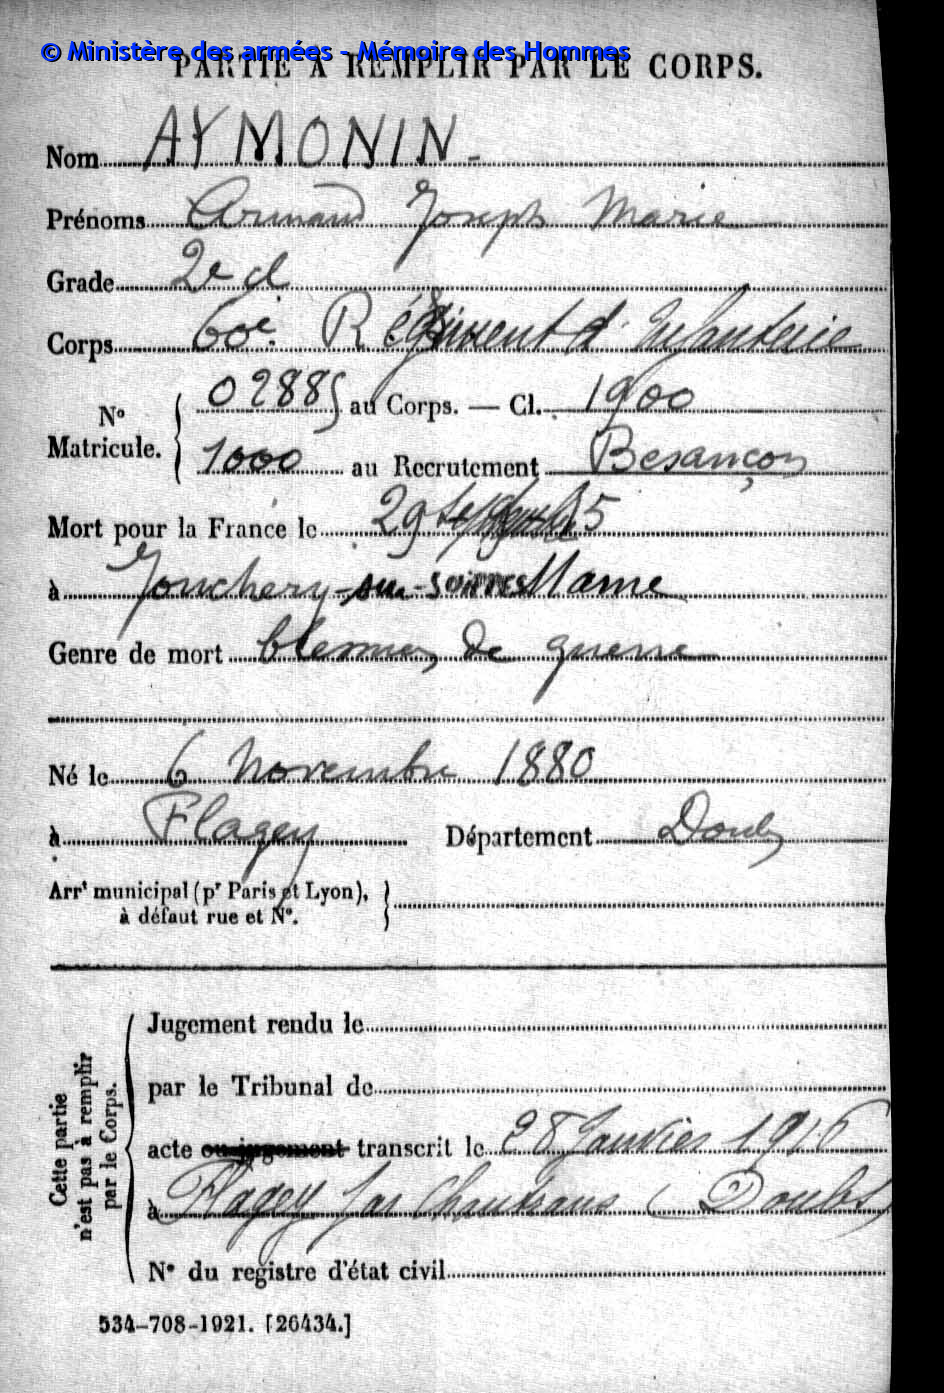 © Ministère des armées - Mémoire des Hommes
PARTIE À REMPLIR PAR LE CORPS.
Nom AYMONIN -
Prénoms Armand Joseph Marie
Grade 2e cl
Corps 60e Régiment d'Infanterie
N° Matricule. 02885 au Corps. — Cl. 1900
1000 au Recrutement Besançon
Mort pour la France le 29 Septembre 15
à Jonchery-sur-Suippes Marne
Genre de mort blessures de guerre
Né le 6 Novembre 1880
à Flagey Département Doubs
Arrt municipal (pr Paris et Lyon),
à défaut rue et N°.
Cette partie n'est pas à remplir par le Corps.
Jugement rendu le
par le Tribunal de
acte ou jugement transcrit le 28 Janvier 1916
à Flagey par Chantrans (Doubs)
N° du registre d'état civil
534-708-1921. [26434.]